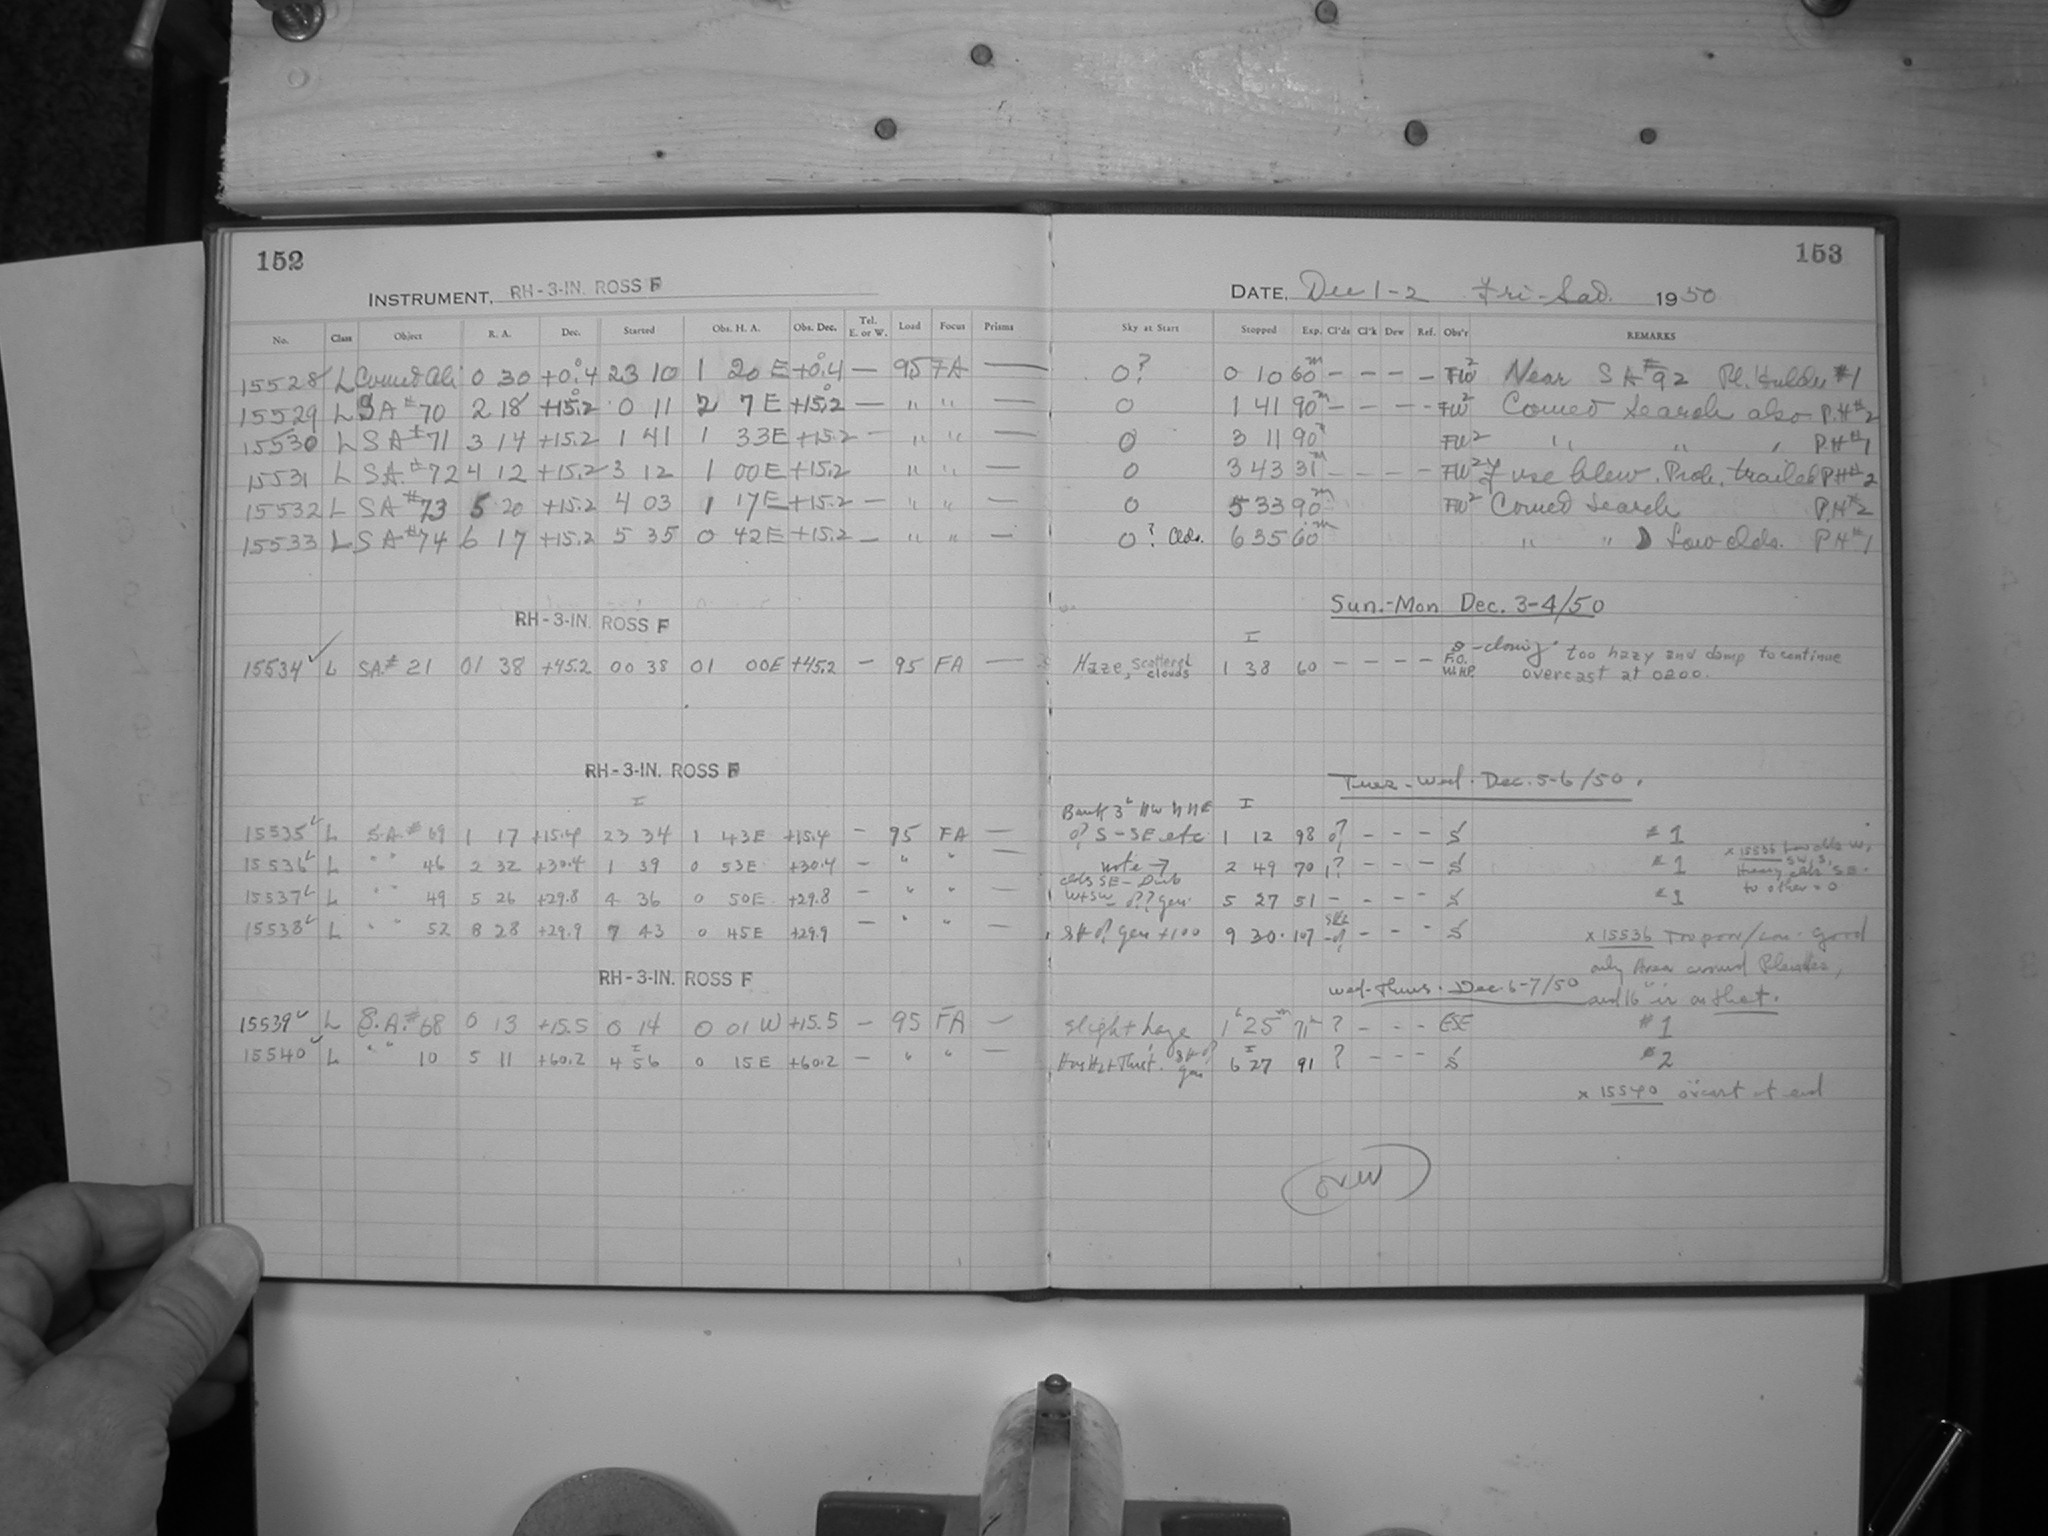 152
153
INSTRUMENT, RH-3-IN. ROSS F
DATE, Dec 1-2 Fri-Sat. 1950
No. Class Object R. A. Dec. Started Obs. H. A. Obs. Dec. Tel. E. or W. Load Focus Prisms Sky at Start Stopped Exp. Cl'ds Cl'k Dew Ref. Obs'r REMARKS
15528 L 0 30 +0.4 23 10 1 20 E +0.4 — 95 FA — 0? 0 10 60m - - - - FW2 Near SA#92 Pl. Holder #1
15529 L SA#70 2 18 +15.2 0 11 2 7 E +15.2 — " " — 0 1 41 90m - - - - FW2 Comet Search also P.H#2
15530 L SA#71 3 14 +15.2 1 41 1 33E +15.2 — " " — 0 3 11 90m FW2 " " " P.H#1
15531 L SA#72 4 12 +15.2 3 12 1 00E +15.2 " " — 0 3 43 31m - - - - FW2 Fuse blew. Prob. trailed PH#2
15532 L SA#73 5 20 +15.2 4 03 1 17E +15.2 — " " — 0 5 33 90m FW2 Comet Search P.H#2
15533 L SA#74 6 17 +15.2 5 35 0 42E +15.2 — " " — 0? Clds. 6 35 60m " " Low clds. P.H#1
RH-3-IN. ROSS F
Sun.-Mon Dec. 3-4/50
15534 ✓ L SA# 21 01 38 +45.2 00 38 01 00E +45.2 — 95 FA — Haze, scattered clouds 1 38 60 - - - - S-closing F.O. W.H.P. too hazy and damp to continue
overcast at 0200.
RH-3-IN. ROSS F
Tues-Wed. Dec. 5-6/50.
Bank 3° NW N NE
15535 ✓ L S.A.# 69 1 17 +15.4 23 34 1 43E +15.4 — 95 FA — 0? S-SE etc 1 12 98 0? - - - S #1
15536 ✓ L " " 46 2 32 +30.4 1 39 0 53E +30.4 — " " — note → 2 49 70 1? - - - S #1
x 15536 Low clds W,
SW, S,
Heavy clds SE.
to other = 0
15537 ✓ L " " 49 5 26 +29.8 4 36 0 50E +29.8 — " " clds SE - W+SW - 0?? gen. 5 27 51 - - - - S #1
15538 ✓ L " " 52 8 28 +29.9 7 43 0 45E +29.9 — " " — gen +100 9 30 107 - - - S
x 15536 Too poor/ good
only Area around Pleiades,
and 16" is on that.
RH-3-IN. ROSS F
Wed-Thurs. Dec. 6-7/50
15539 ✓ L S.A.# 68 0 13 +15.5 0 14 0 01 W +15.5 — 95 FA — slight haze 1h 25m 71m ? - - - ESE #1
15540 ✓ L " " 10 5 11 +60.2 4 56 0 15E +60.2 — " " — gen 6 27 91 ? - - - S #2
x 15540 at end
over